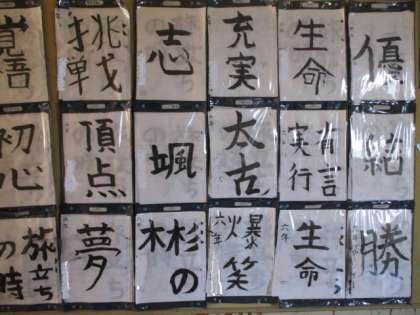 覚悟
挑戦
志
充実
生命
優
初心
頂点
颯
太古
有言
実行
結
旅立ち
の時
夢
爆笑
六年
生命
六年
勝